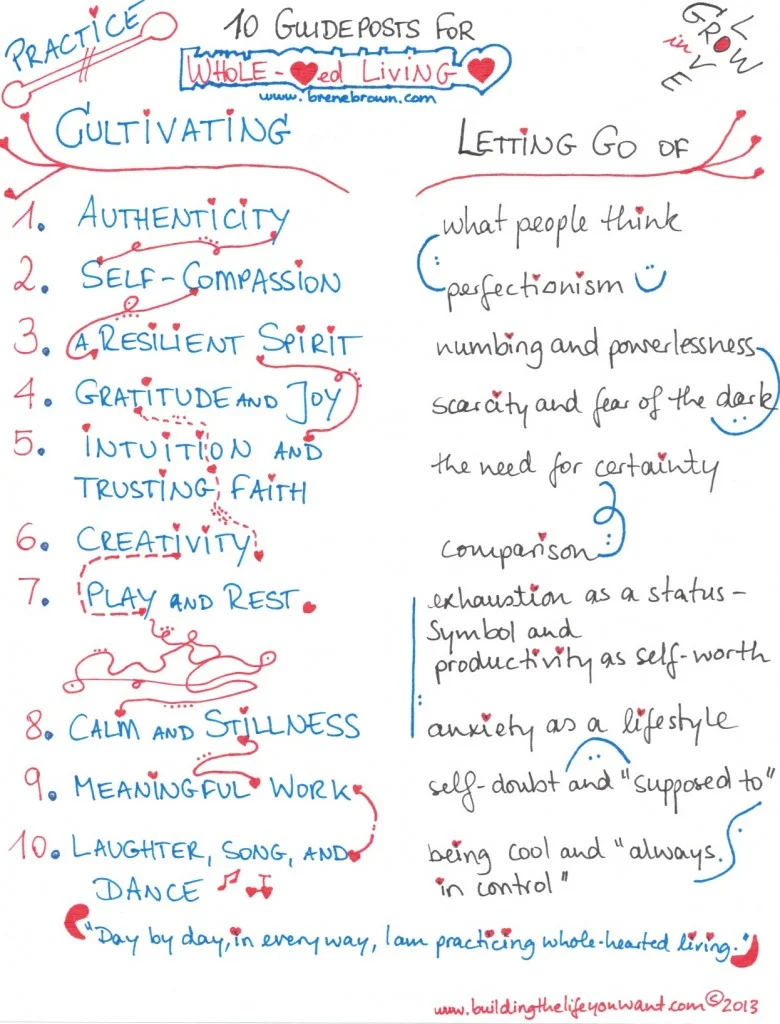 PRACTICE
10 GUIDEPOSTS FOR
WHOLE-♥ed LIVING
www.brenebrown.com
GROW
in
LOVE
CULTIVATING
LETTING GO OF
1. AUTHENTICITY
what people think
2. SELF-COMPASSION
perfectionism
3. A RESILIENT SPIRIT
numbing and powerlessness
4. GRATITUDE AND JOY
scarcity and fear of the dark
5. INTUITION AND
TRUSTING FAITH
the need for certainty
6. CREATIVITY
comparison
7. PLAY AND REST
exhaustion as a status-
symbol and
productivity as self-worth
8. CALM AND STILLNESS
anxiety as a lifestyle
9. MEANINGFUL WORK
self-doubt and "supposed to"
10. LAUGHTER, SONG, AND
DANCE
being cool and "always
in control"
"Day by day, in every way, I am practicing whole-hearted living."
www.buildingthelifeyouwant.com © 2013